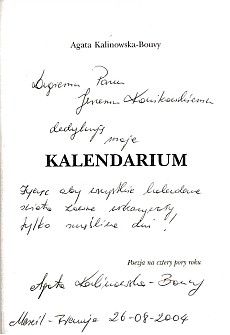 Agata Kalinowska-Bouvy
Drogiemu Panu
Jerzemu Konikowskiemu
dedykuję
moje
KALENDARIUM
Życząc aby wszystkie kalendarze
świata zawsze
tylko myśliwe dni!
Poezja na cztery pory roku
Agata Kalinowska-Bouvy
Francja 26-09-2004